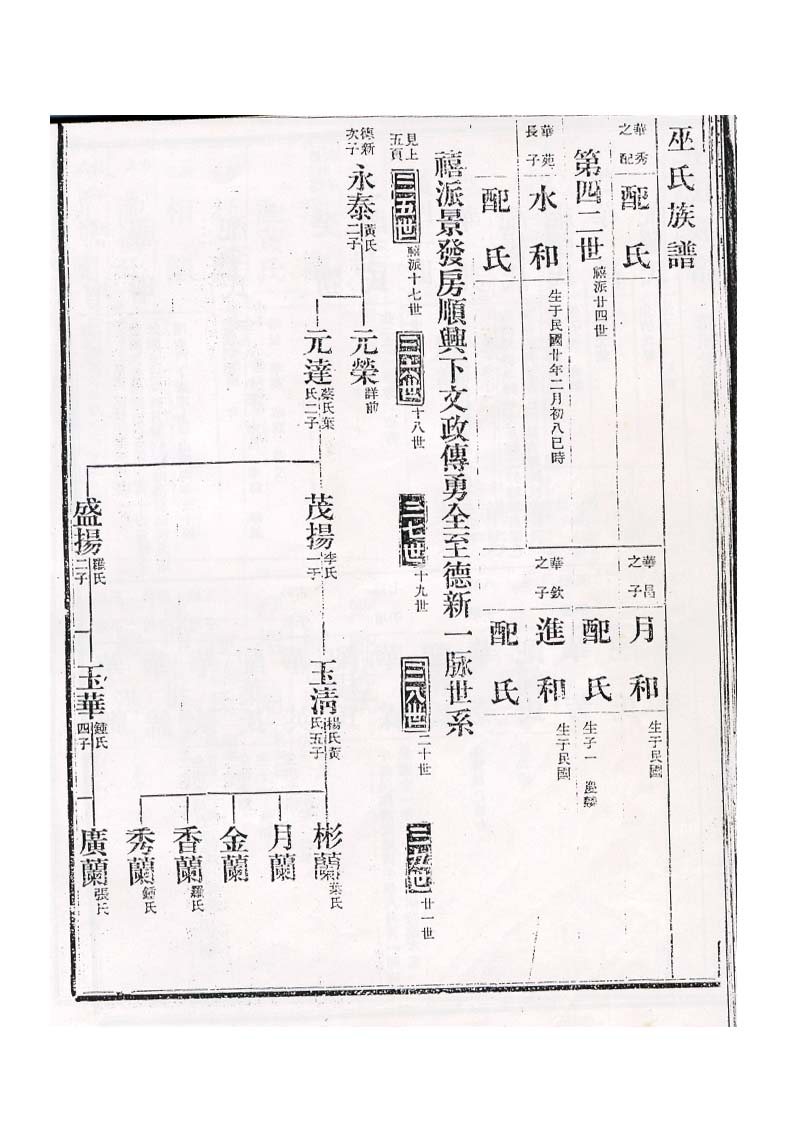 巫氏族譜
華秀之配
配氏
華昌之子
月和
生于民國
第四二世
禧派廿四世
配氏
生子一
華苑長子
水和
生于民國廿年二月初八巳時
華欽之子
進和
生于民國
配氏
配氏
禧派景發房順興下文政傳勇全至德新一脉世系
見上五頁
三五世
禧派十七世
三六世
十八世
三七世
十九世
三八世
二十世
三九世
廿一世
德新次子
永泰
黃氏二子
元榮
詳前
元達
蔡氏葉氏二子
茂揚
李氏一子
玉清
楊氏黃氏五子
彬蘭
葉氏
月蘭
金蘭
香蘭
羅氏
秀蘭
鍾氏
盛揚
羅氏二子
玉華
鍾氏四子
廣蘭
張氏